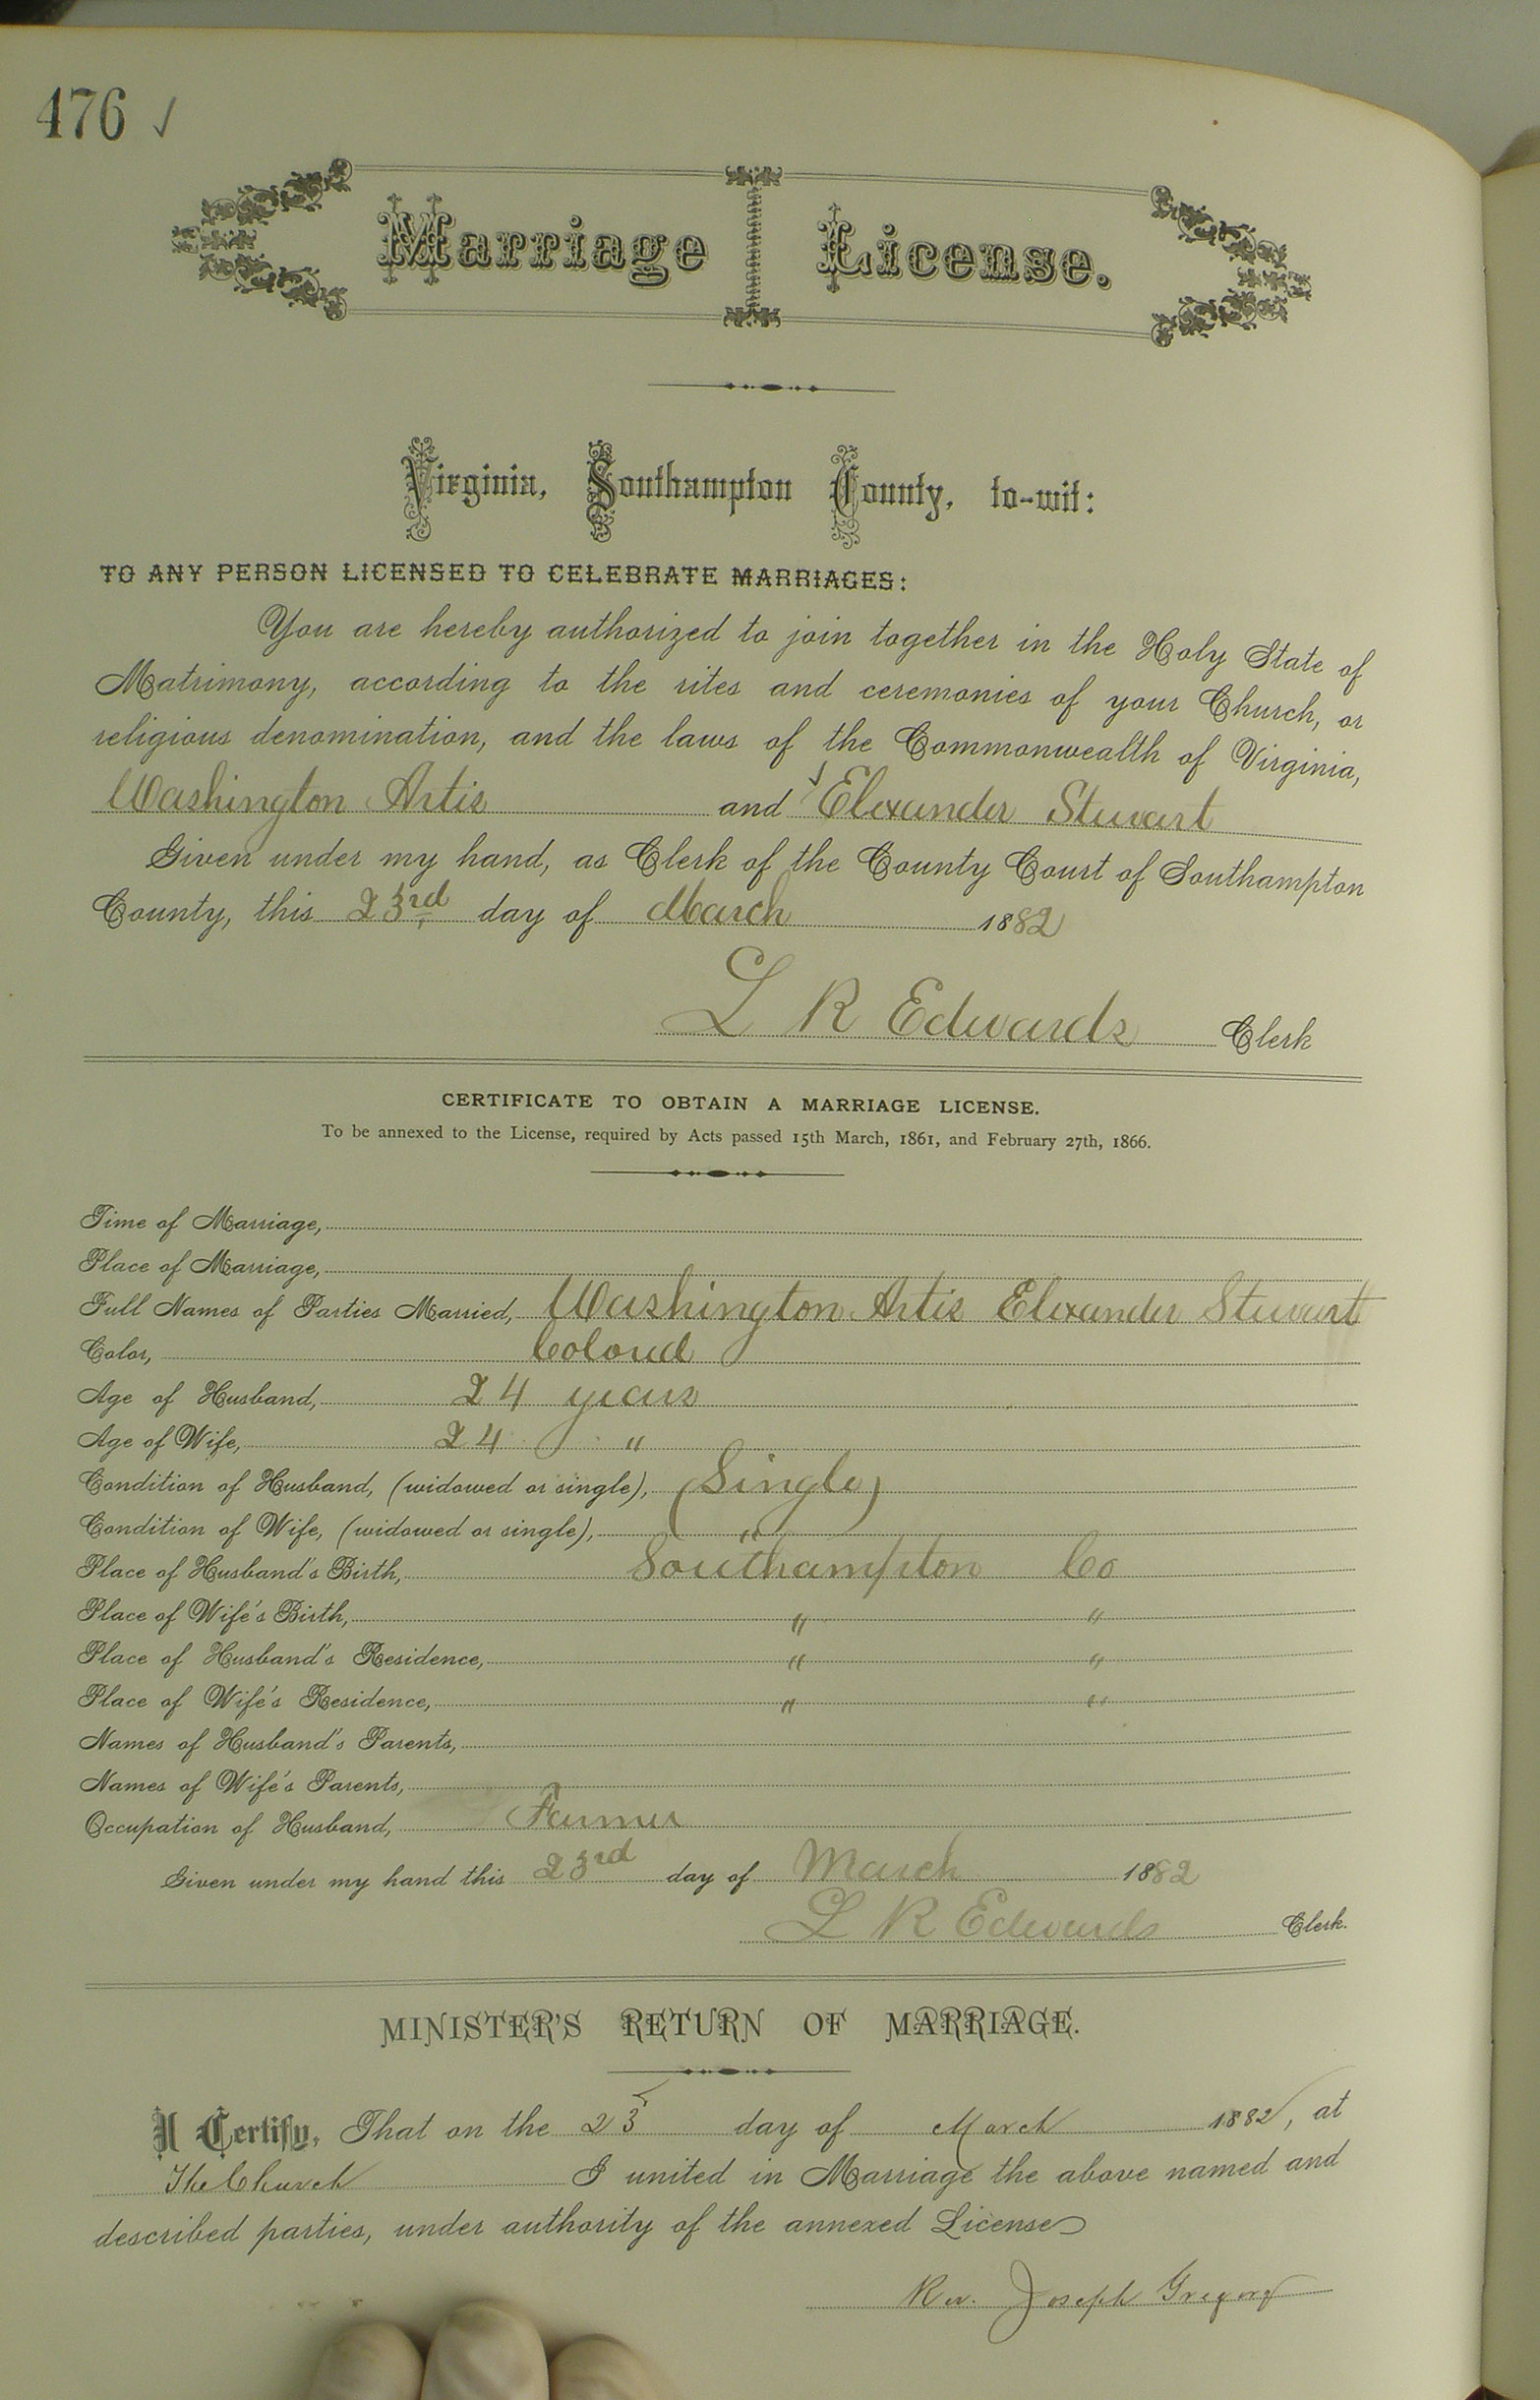 476 ✓
Marriage License.
Virginia, Southampton County, to-wit:
TO ANY PERSON LICENSED TO CELEBRATE MARRIAGES:
You are hereby authorized to join together in the Holy State of
Matrimony, according to the rites and ceremonies of your Church, or
religious denomination, and the laws of the Commonwealth of Virginia,
Washington Artis and Elexander Stewart
Given under my hand, as Clerk of the County Court of Southampton
County, this 23rd day of March 1882
L R Edwards Clerk
CERTIFICATE TO OBTAIN A MARRIAGE LICENSE.
To be annexed to the License, required by Acts passed 15th March, 1861, and February 27th, 1866.
Time of Marriage,
Place of Marriage,
Full Names of Parties Married, Washington Artis Elexander Stewart
Color, Colored
Age of Husband, 24 years
Age of Wife, 24 "
Condition of Husband, (widowed or single), (Single)
Condition of Wife, (widowed or single), "
Place of Husband's Birth, Southampton Co
Place of Wife's Birth, " "
Place of Husband's Residence, " "
Place of Wife's Residence, " "
Names of Husband's Parents,
Names of Wife's Parents,
Occupation of Husband, Farmer
Given under my hand this 23rd day of March 1882
L R Edwards Clerk.
MINISTER'S RETURN OF MARRIAGE.
I Certify, That on the 23 day of March 1882, at
The Church I united in Marriage the above named and
described parties, under authority of the annexed License
Rev. Joseph Gregory